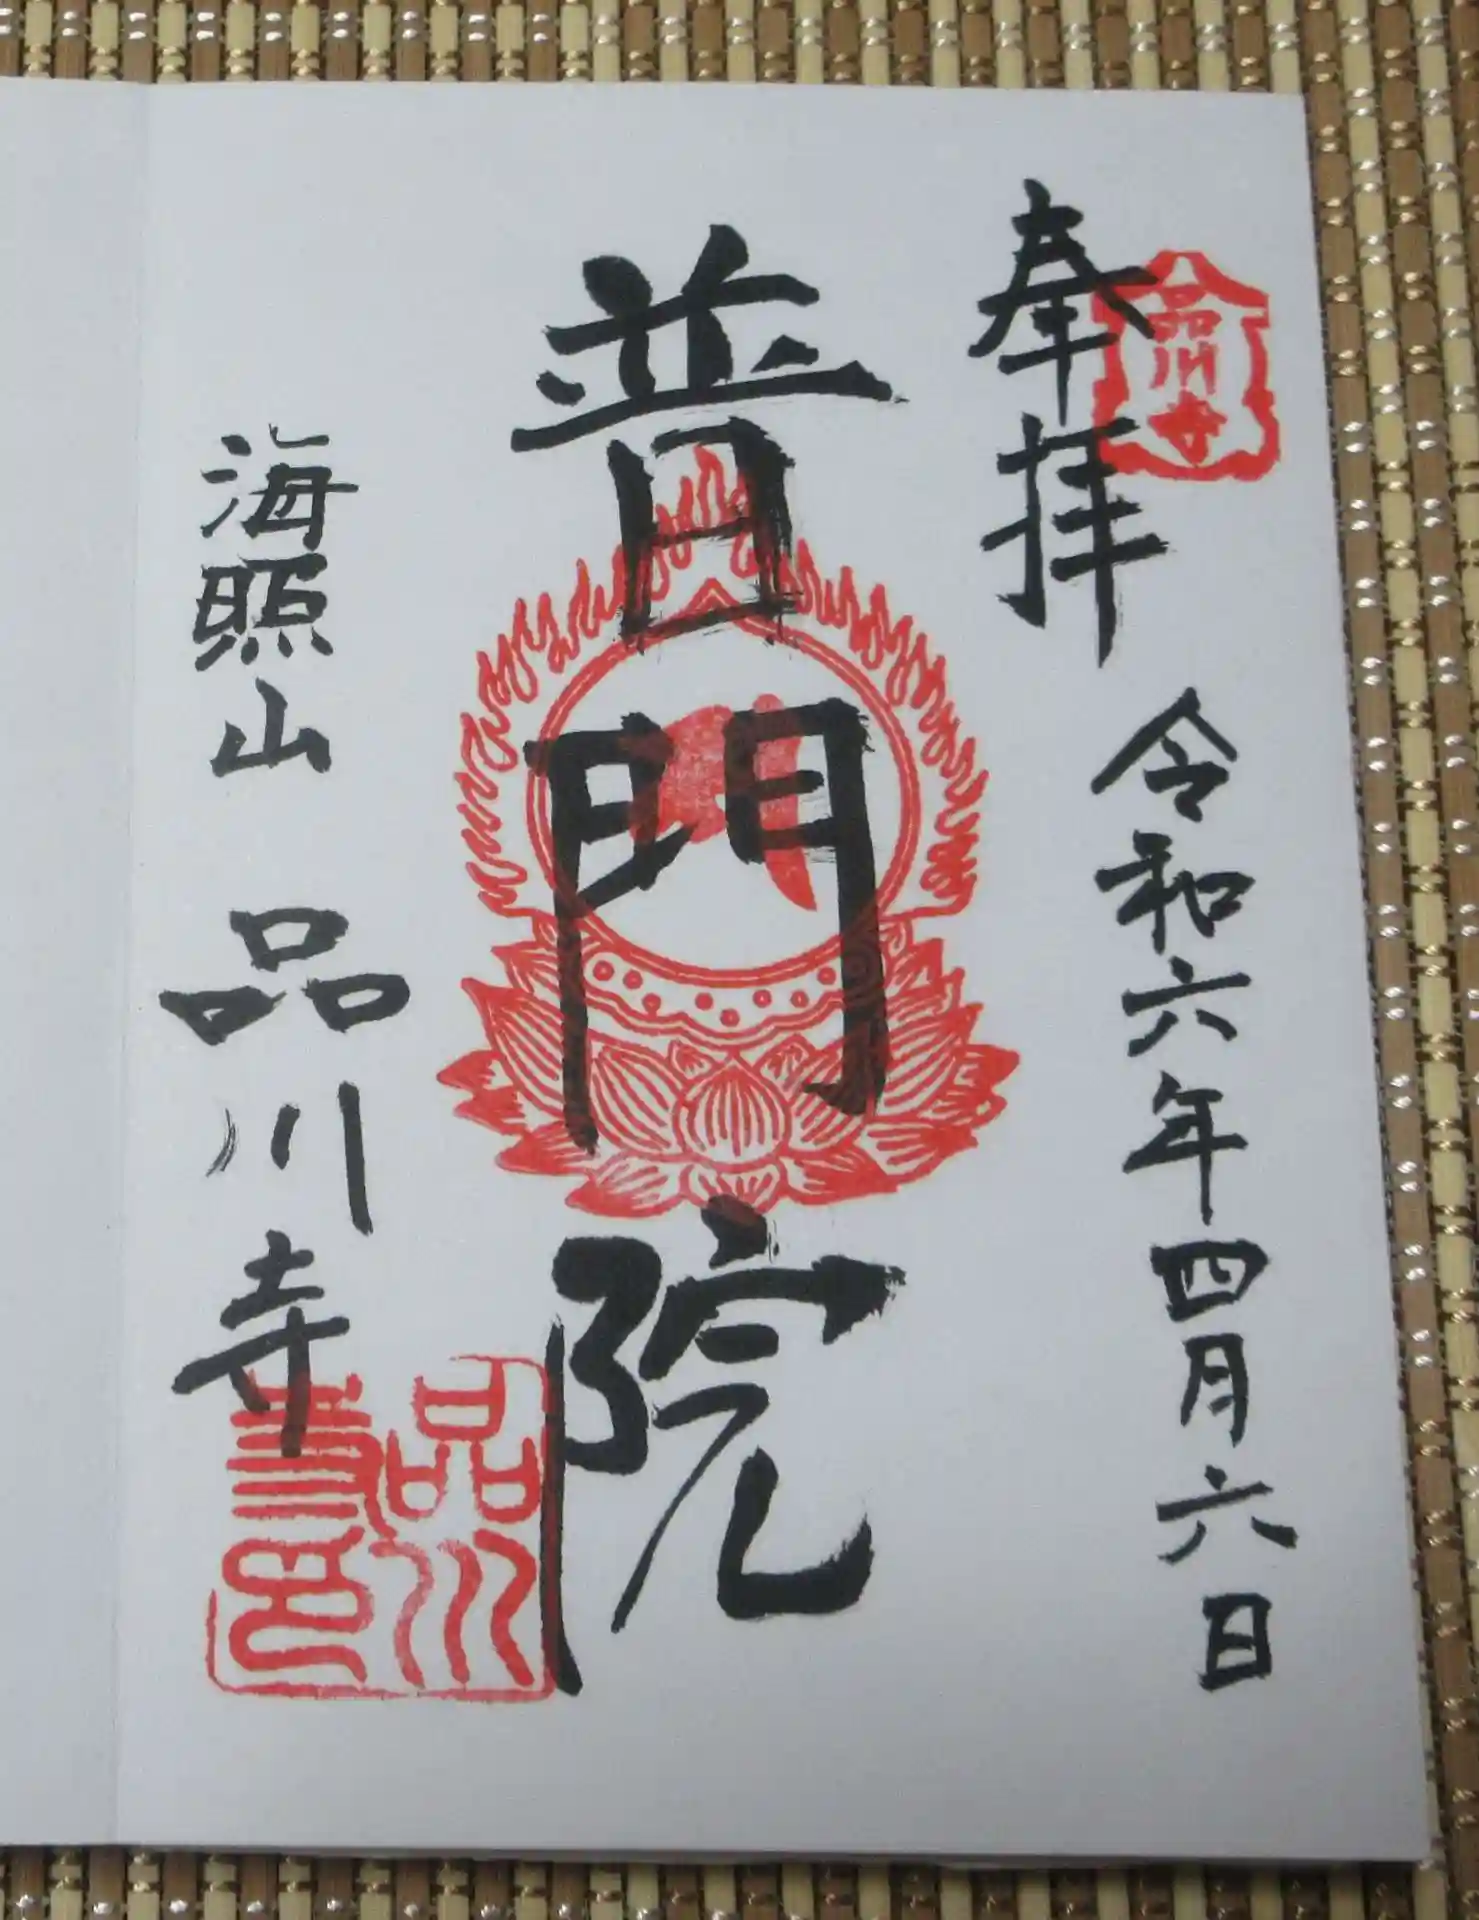 奉拝
品川寺
令和六年四月六日
普門院
海照山 品川寺
品川
寺印